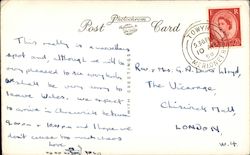 Post Card
WITH GREETINGS
TOWYN
This really is a marvellous
spot and, although we will be
very pleased to see everybody
we shall be very sorry to
leave Wales. We expect
to arrive in Chiswick between
and I hope we
don't cause too much
Love
Rev. & Mrs. G. Lloyd
The Vicarage,
Chiswick Mall,
LONDON.
W.4.